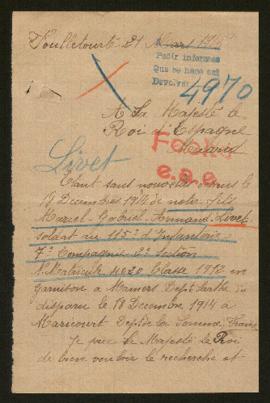 Foulletourte 21 Mars
Pedir informes
Que se haga así
Devolver
4970
A Sa Majesté le
Roi d'Espagne
Madrid
Livet
Fecha
Etant sans nouvelle depuis le
18 Decembre 1914 de notre fils
Marcel Gabriel Fernand Livet
soldat au 115e d'Infanterie
7e Compagnie 2e Section
Nº Matricule Classe en
garnison à Mamers Dept Sarthe
disparu le 18 Decembre 1914 à
Maricourt Dept de la Somme France
Je prie Sa Majesté le Roi
de bien vouloir le rechercher et